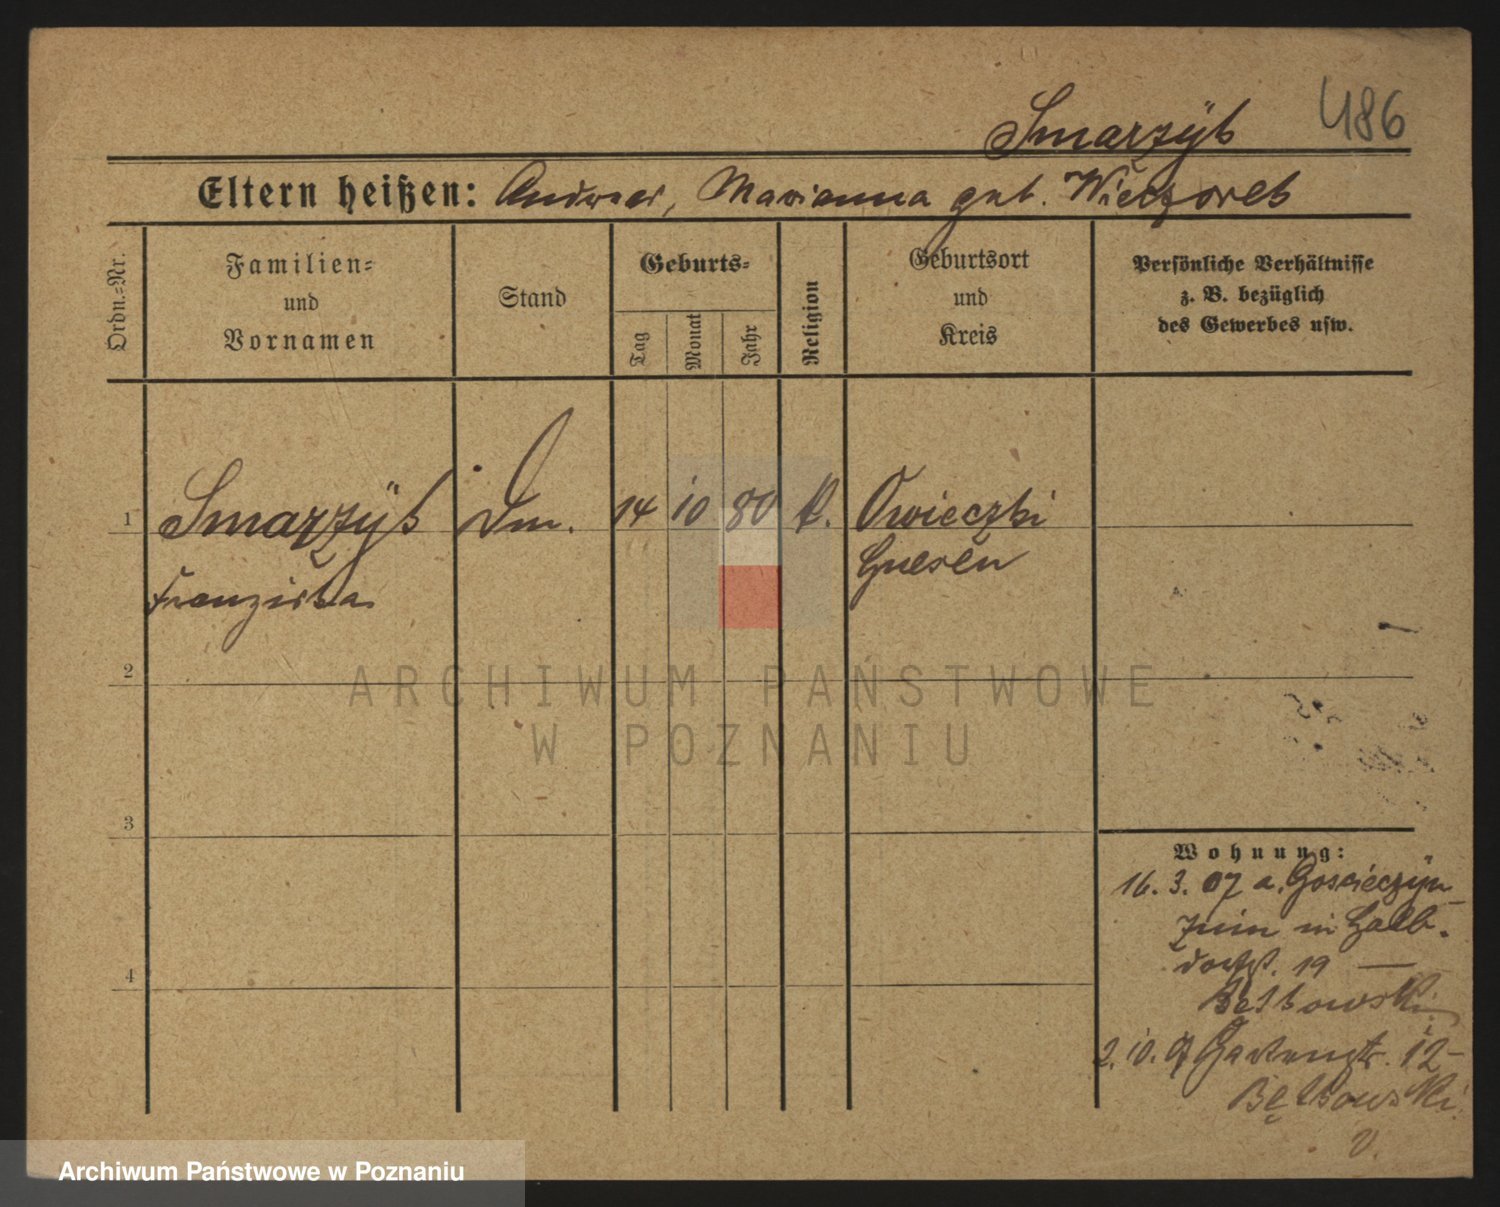 486
Smarzÿk
Eltern heißen: Andreas, Marianna geb. Wieczorek
Ordn.-Nr.
Familien-
und
Vornamen
Stand
Geburts-
Tag
Monat
Jahr
Religion
Geburtsort
und
Kreis
Persönliche Verhältnisse
z. B. bezüglich
des Gewerbes usw.
1 Smarzÿk Dm. 14 10 80 k. Owieczki
Franziska Gnesen
2
3
4
Wohnung:
16. 3. 07 a.
in Halb-
dorfst. 19 —
Bętkowski
2. 10. 07 Gartenstr. 12-
Bętkowski
v.
ARCHIWUM PAŃSTWOWE
W POZNANIU
Archiwum Państwowe w Poznaniu